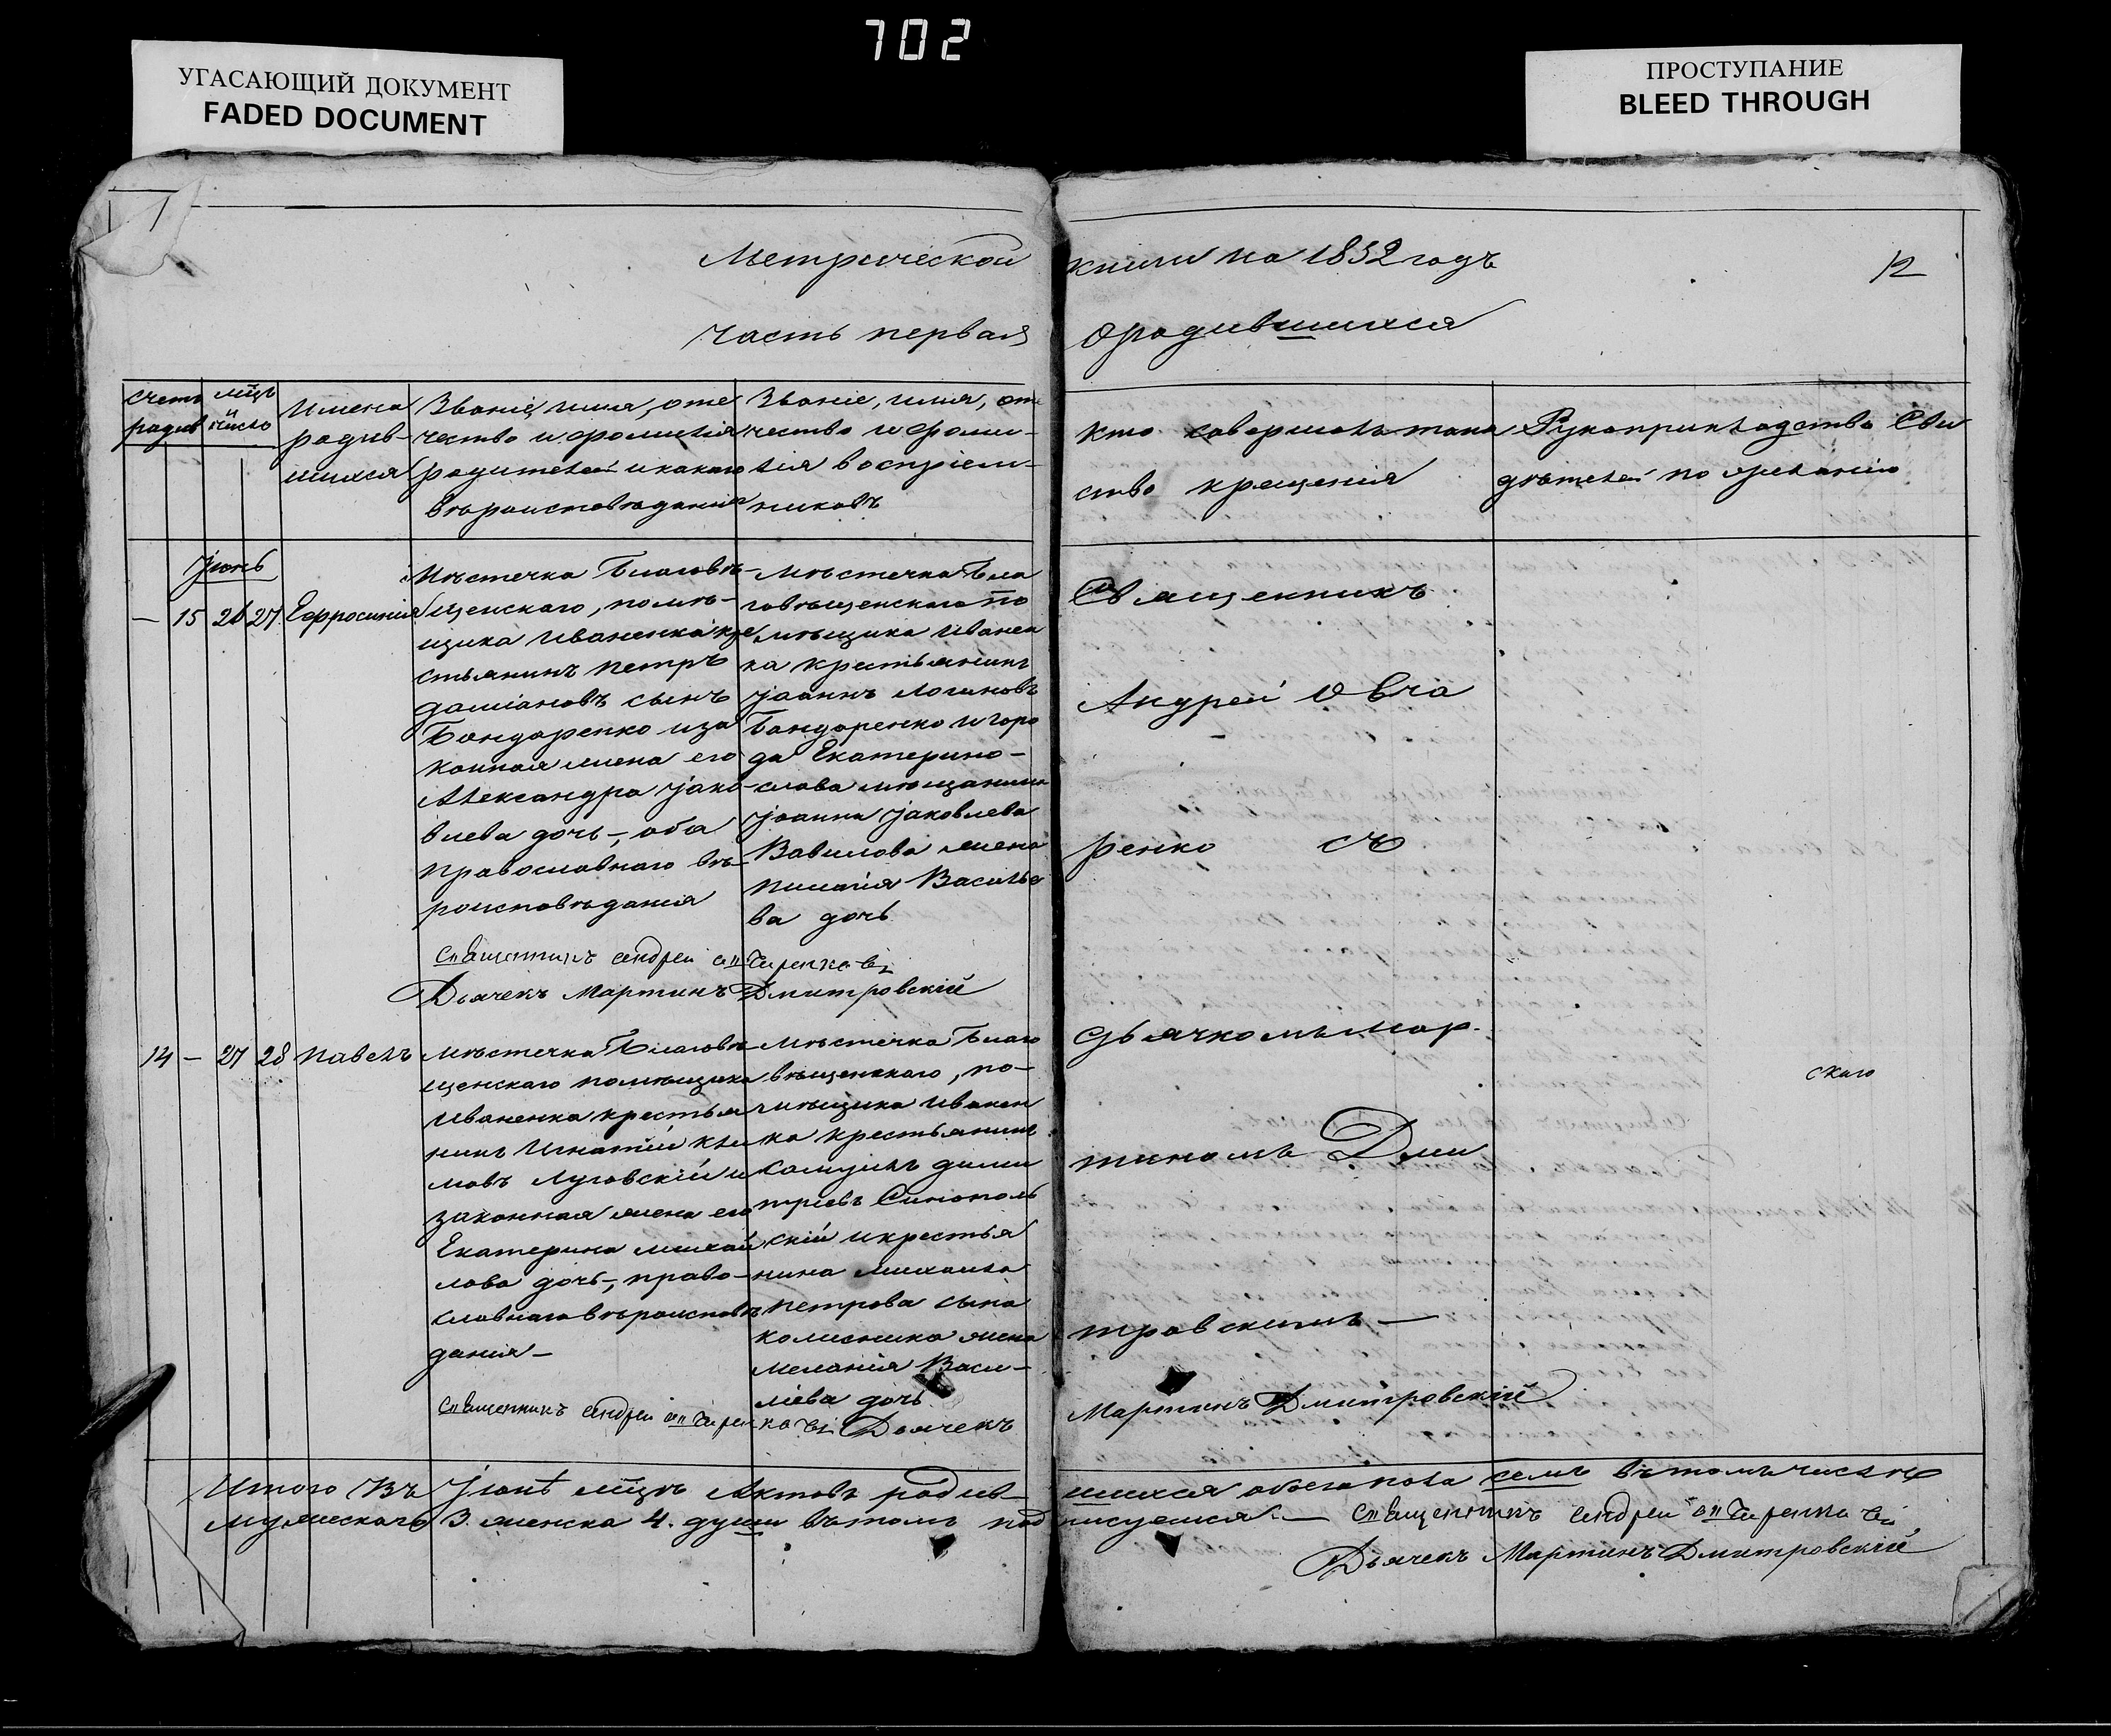 702
УГАСАЮЩИЙ ДОКУМЕНТ
FADED DOCUMENT
ПРОСТУПАНИЕ
BLEED THROUGH
Метрической книги на 1852 годъ
12
Часть первая о родившихся
Счетъ родив
мцъ число
Имена родив-
шихся
Званіе, имя, оте
чество и фамилія
родителей и какого
вѣроисповѣданія
Званіе, имя, от
чество и фами-
лія воспріем-
никовъ
Кто совершалъ таин
ство крещенія
Рукоприкладство Сви
дѣтелей по желанію
Іюнь
— 15 26 27 Ефросинія
Мѣстечка Благовѣ-
щенскаго, помѣ-
щика Иваненка кре
стьянинъ Петръ
Даміановъ сынъ
Бондаренко и за
конная жена его
Александра Іако-
влева дочь, оба
православнаго вѣ-
роисповѣданія
Мѣстечка Бла
говѣщенскаго по
мѣщика Иванен
ка крестьянинъ
Іоаннъ Логиновъ
Бондаренко и горо
да Екатерино-
слава мѣщанина
Іоанна Іаковлева
Вавилова жена
Васильє
ва дочь
Священникъ
Андрей Овча
ренко съ
Священникъ Андрей Овчаренковъ
Дьячекъ Мартинъ Дмитровскій
14 — 27 28 Павелъ
Мѣстечка Благовѣ
щенскаго помѣщика
Иваненка крестья
нинъ Игнатій Кли
мовъ Луговскій и
законная жена его
Екатерина Михай
лова дочь, право-
славнаго вѣроисповѣ
данія —
Мѣстечка Благо
вѣщенскаго, по-
мѣщика Иванен
ка крестьянинъ
Самуилъ Дими
тріевъ Синополь
скій и крестья
нина Михаила
Петрова сына
Колисника жена
Меланія Васи-
лієва дочь
дьячкомъ Мар-
скаго
тиномъ Дми
тровскимъ —
Священникъ Андрей Овчаренковъ Дьячекъ
Мартинъ Дмитровскій
Итого въ Іюнѣ мцѣ Актовъ родив-шихся обоего пола семь въ томъ числѣ
мужескаго 3. женска 4. души въ томъ подписуемся. — Священникъ Андрей Овчаренковъ
Дьячекъ Мартинъ Дмитровскій